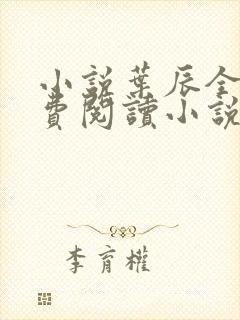 小說葉辰全
費閱讀小說
李育權